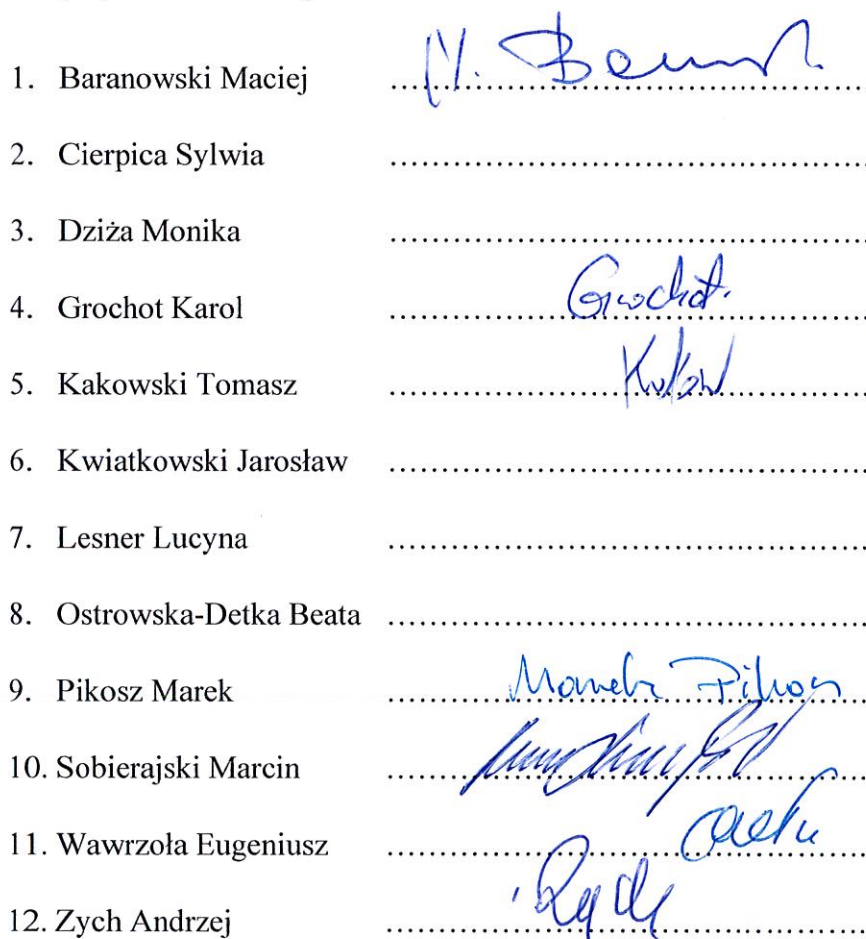 1. Baranowski Maciej ........................................ M. 
2. Cierpica Sylwia ........................................
3. Dziża Monika ........................................
4. Grochot Karol ........................................ Grochot.
5. Kakowski Tomasz ........................................
6. Kwiatkowski Jarosław ........................................
7. Lesner Lucyna ........................................
8. Ostrowska-Detka Beata ........................................
9. Pikosz Marek ........................................ Marek Pikosz
10. Sobierajski Marcin ........................................
11. Wawrzoła Eugeniusz ........................................
12. Zych Andrzej ........................................